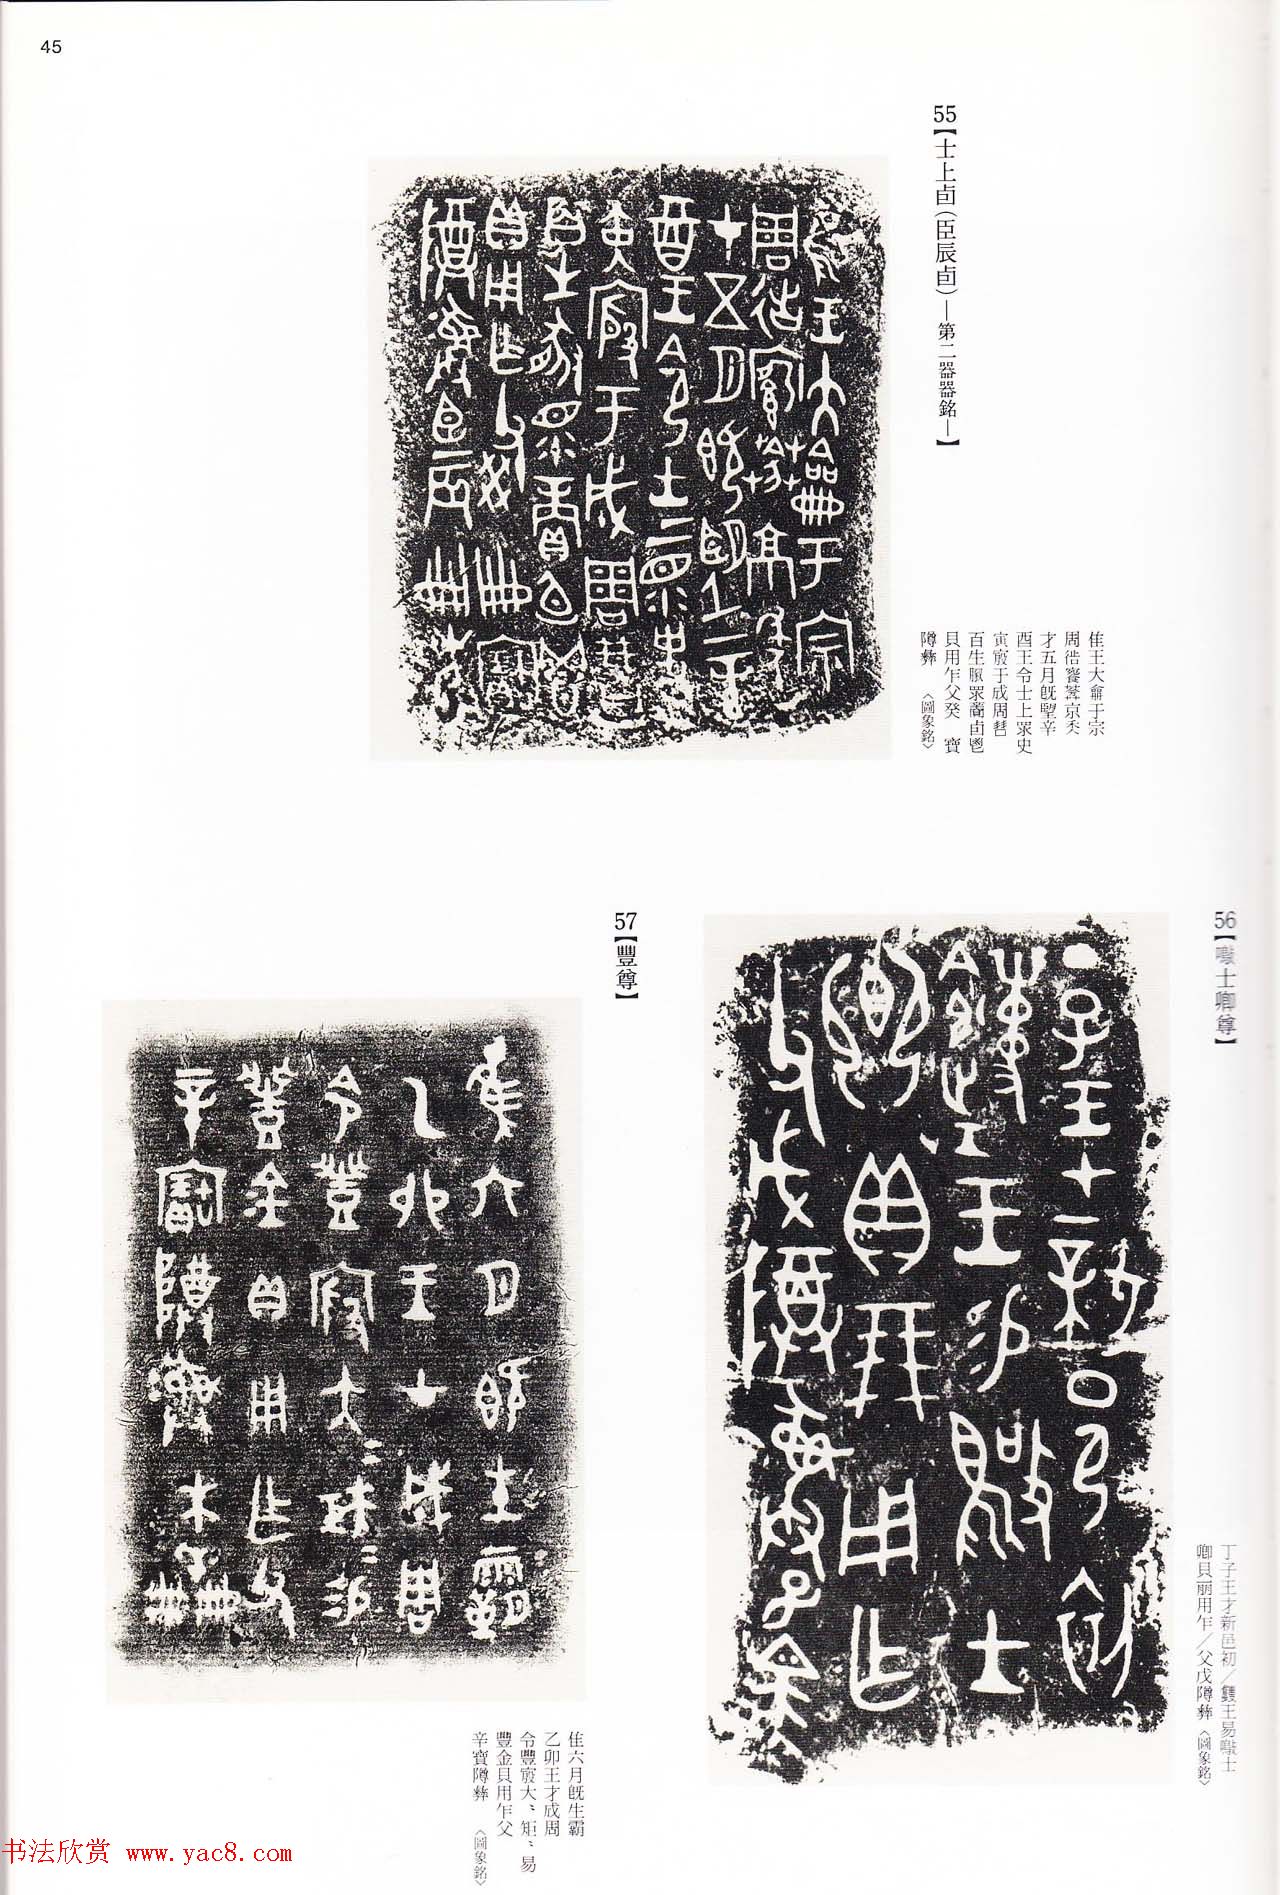 45
55【士上卣(臣辰卣)—第二器器銘—】
隹王大龠于宗
周𢓊饔䓝京年
才五月旣朢辛
酉王令士上眔史
寅殷于成周
百生豚眔卣鬯
貝用乍父癸 寶
隣彝 〈圖象銘〉
56【士卿尊】
丁子王才新邑初/王易士
卿貝朋用乍/父戊隣彝〈圖象銘〉
57【豐尊】
隹六月旣生霸
乙卯王才成周
令豐殷大〻矩〻易
豐金貝用乍父
辛寶隣彝 〈圖象銘〉
书法欣赏 www.yac8.com